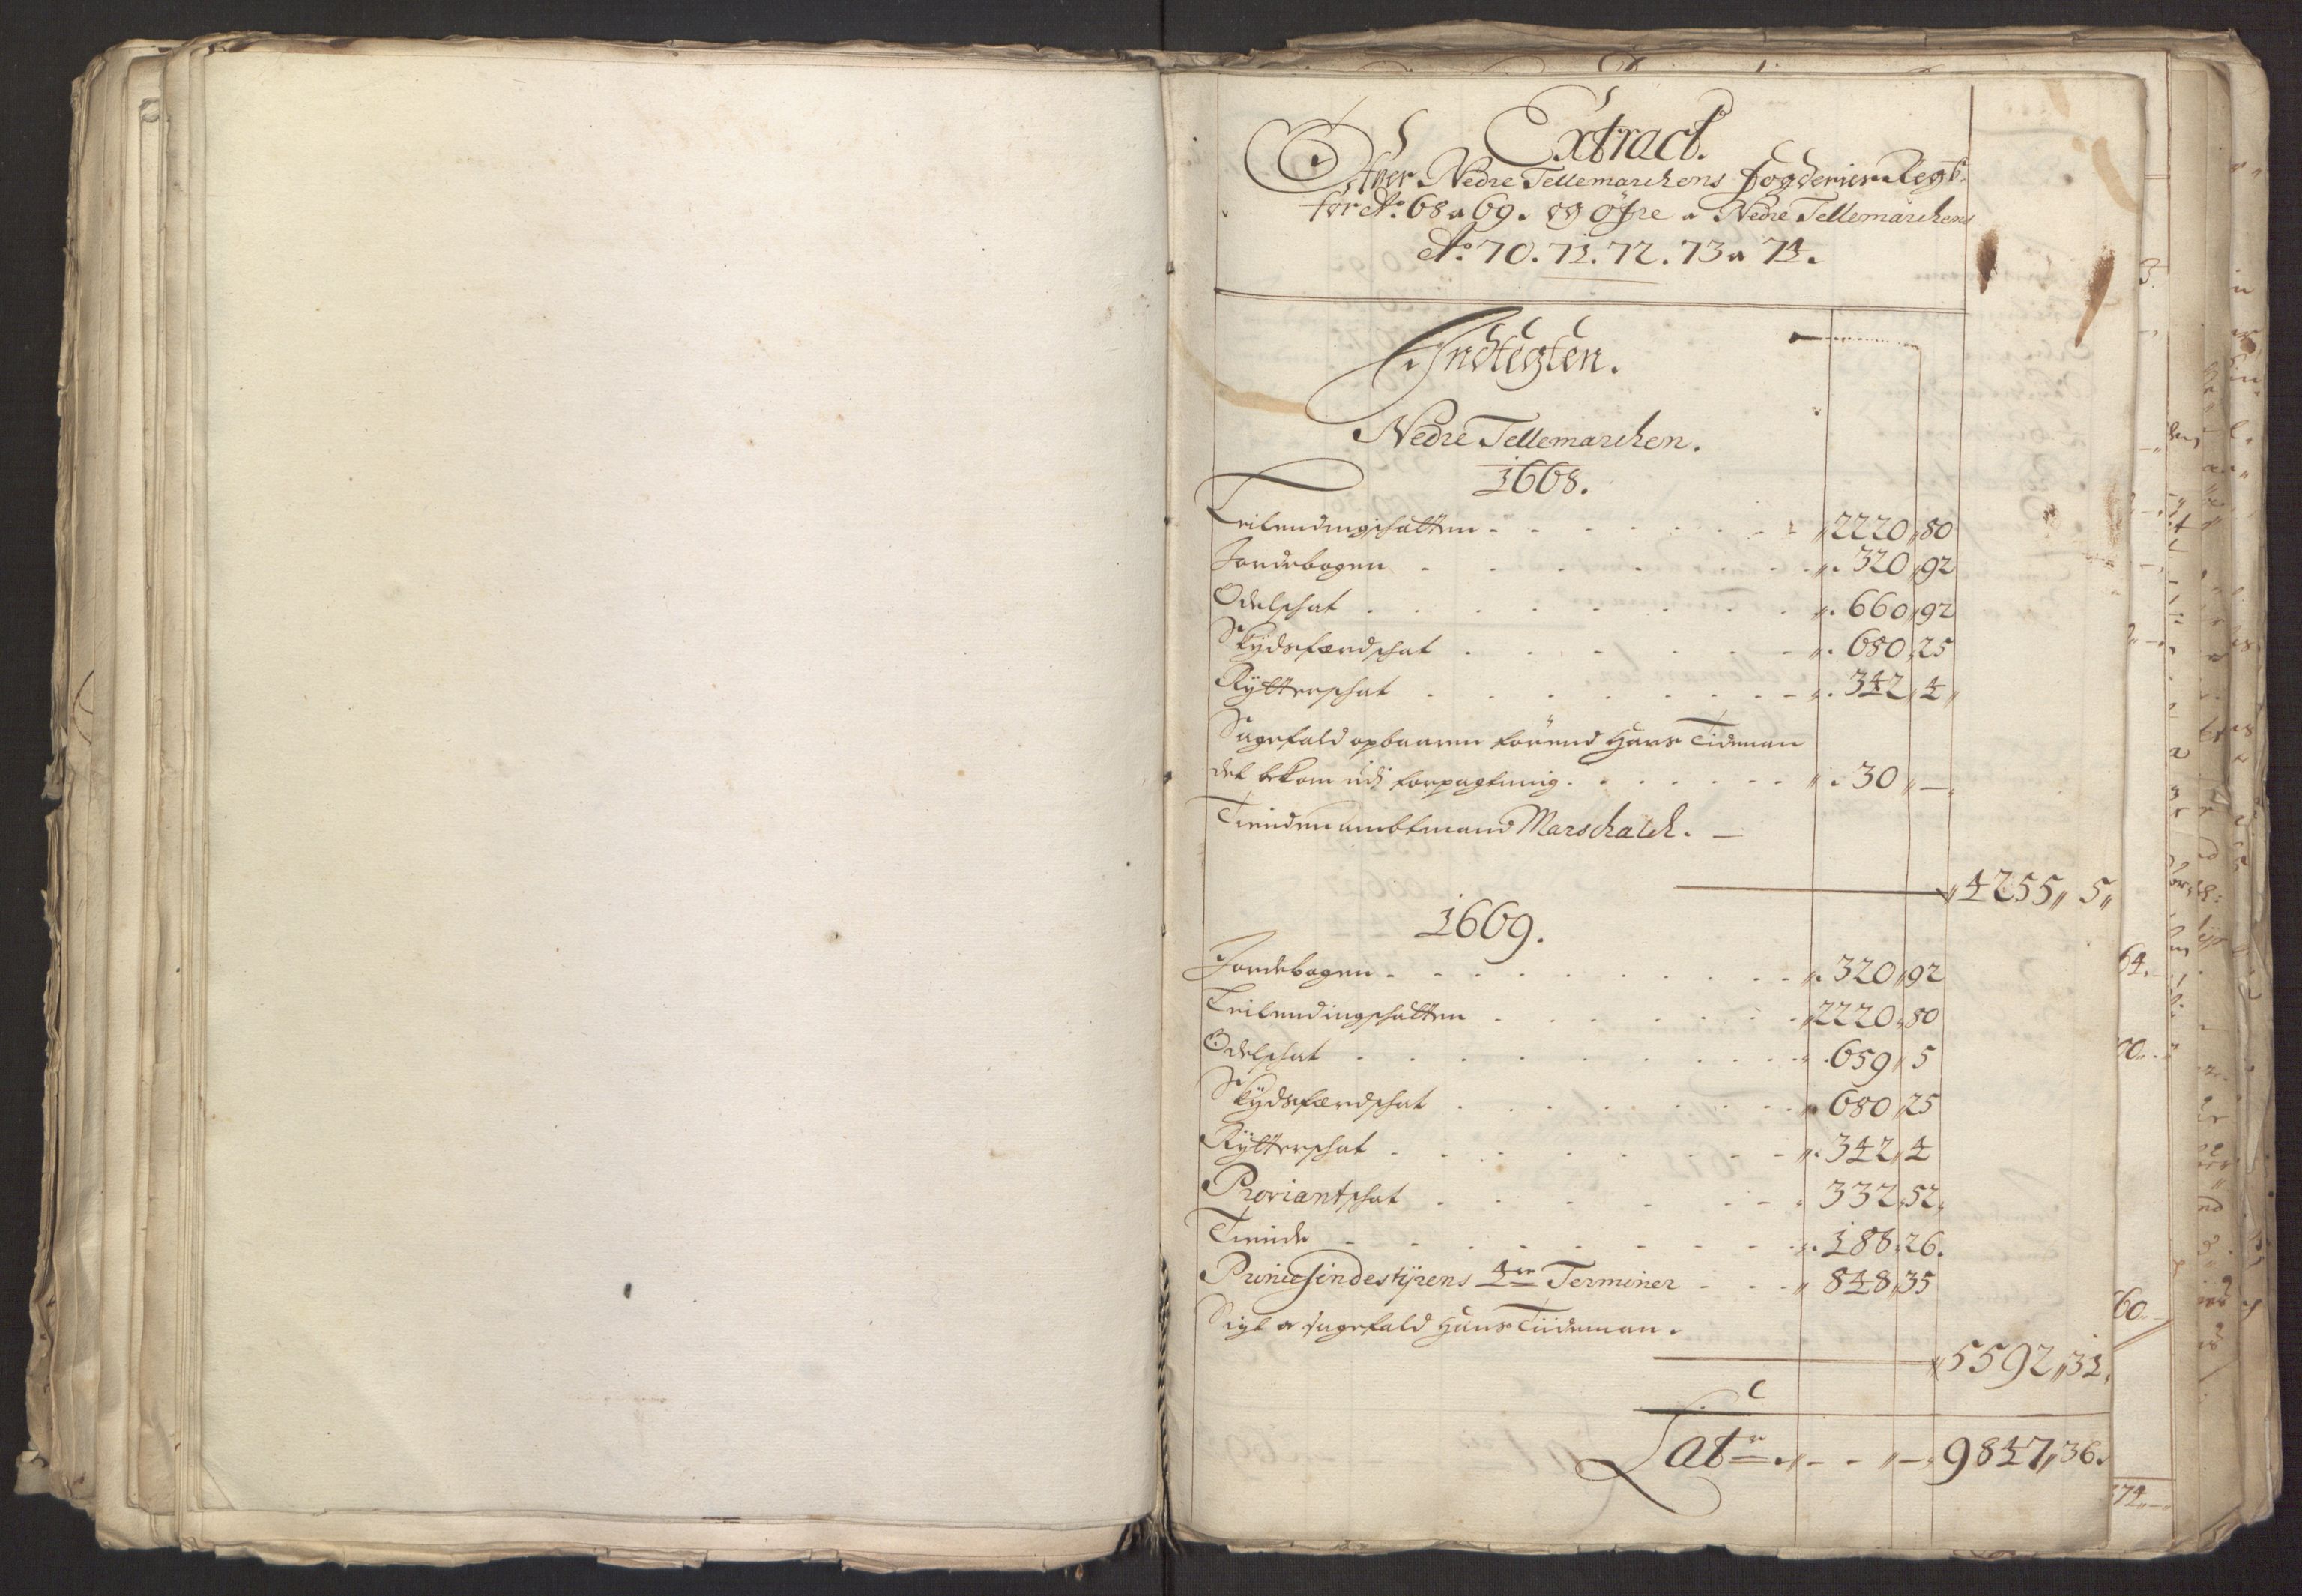 Extract.
Ofver Nedre Tellemarchens fogderier Regb:
for Ao: 68 a 69. og Öfre a Nedre Tellemarchens
Ao: 70. 71. 72. 73 a 74.
Indtegten.
Nedre Tellemarchen.
1668.
Leilendingschatten - - - 2220 80
Jordebogen - - - 320 92
Odelschat - - - 660 92
Skydsferdschat - - - 680 25
Rytterschat - - - 342 4
Sagefald opbaaren förend Hans Tideman
det bekom udj forpagtning - - - 30 —
Tienden ambtmand Marschalch. —
4255 5
1669.
Jordebogen - - - 320 92
Leilendingschatten - - - 2220 80
Odelschat - - - 659 5
Skydsferdschat - - - 680 25
Rytterschat - - - 342 4
Proviantschat - - - 332 52
Tiende - - - 188 26.
Princesindestyrens 4re Terminer - - - 848 35
Sigt a sagefald Hans Tiideman.
5592 31
Latr - - - 9847 36.